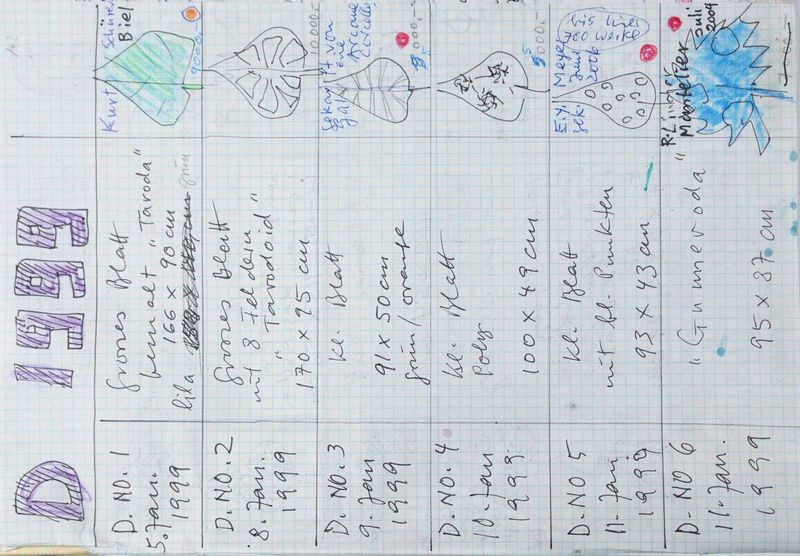 D 1999
D. NO. 1
5. Jan.
1999
Grosses Blatt
bemalt "Taroda"
166 x 90 cm
lila
grün
Kurt
Biel
9000.-
D. NO. 2
8. Jan.
1999
Grosses Blatt
mit 8 Feldern
"Tarodoid"
170 x 95 cm
10,000.-
D. NO. 3
9. Jan
1999
Kl. Blatt
91 x 50 cm
grün/orange
D. NO. 4
10. Jan
1999
Kl. Blatt
Poly
100 x 49 cm
D. NO 5
11. Jan
1999
Kl. Blatt
mit bl. Punkten
93 x 43 cm
E.Y. Meyer
Juni
2006
bis hier
700 Werke
D. NO 6
11. Jan.
1999
"Gunnevoda"
95 x 87 cm
Juli
2004